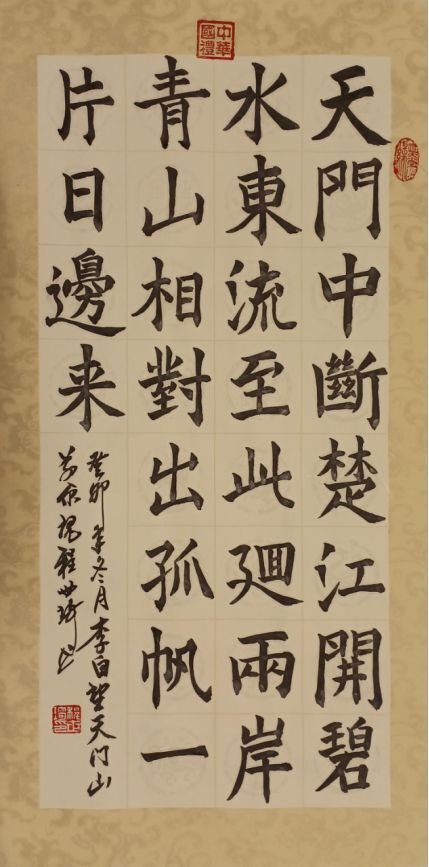 天門中斷楚江開碧
水東流至此廻兩岸
青山相對出孤帆一
片日邊来
癸卯年冬月李白望天门山
中華國禮